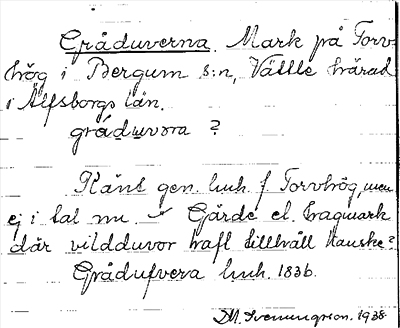 Gråduverna. Mark på Torv-
hög i Bergum s:n, Vättle härad
i Älfsborgs län.
gráduvora ?
Känt gen. luh. f. Torvhög, men
ej i tal nu. Gärde el. hagmark
där vildduvor haft tillhåll kanske?
Grådufvera luh. 1836.
Sveningsson. 1938